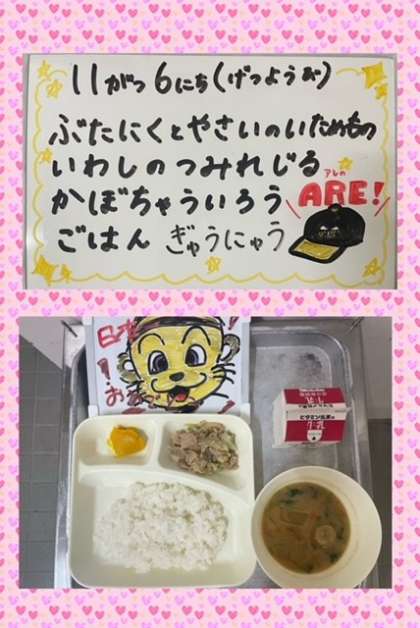 11がつ6にち(げつようび)
ぶたにくとやさいのいためもの
いわしのつみれじる
かぼちゃういろう
アレの
ARE!
ごはん ぎゅうにゅう
日本